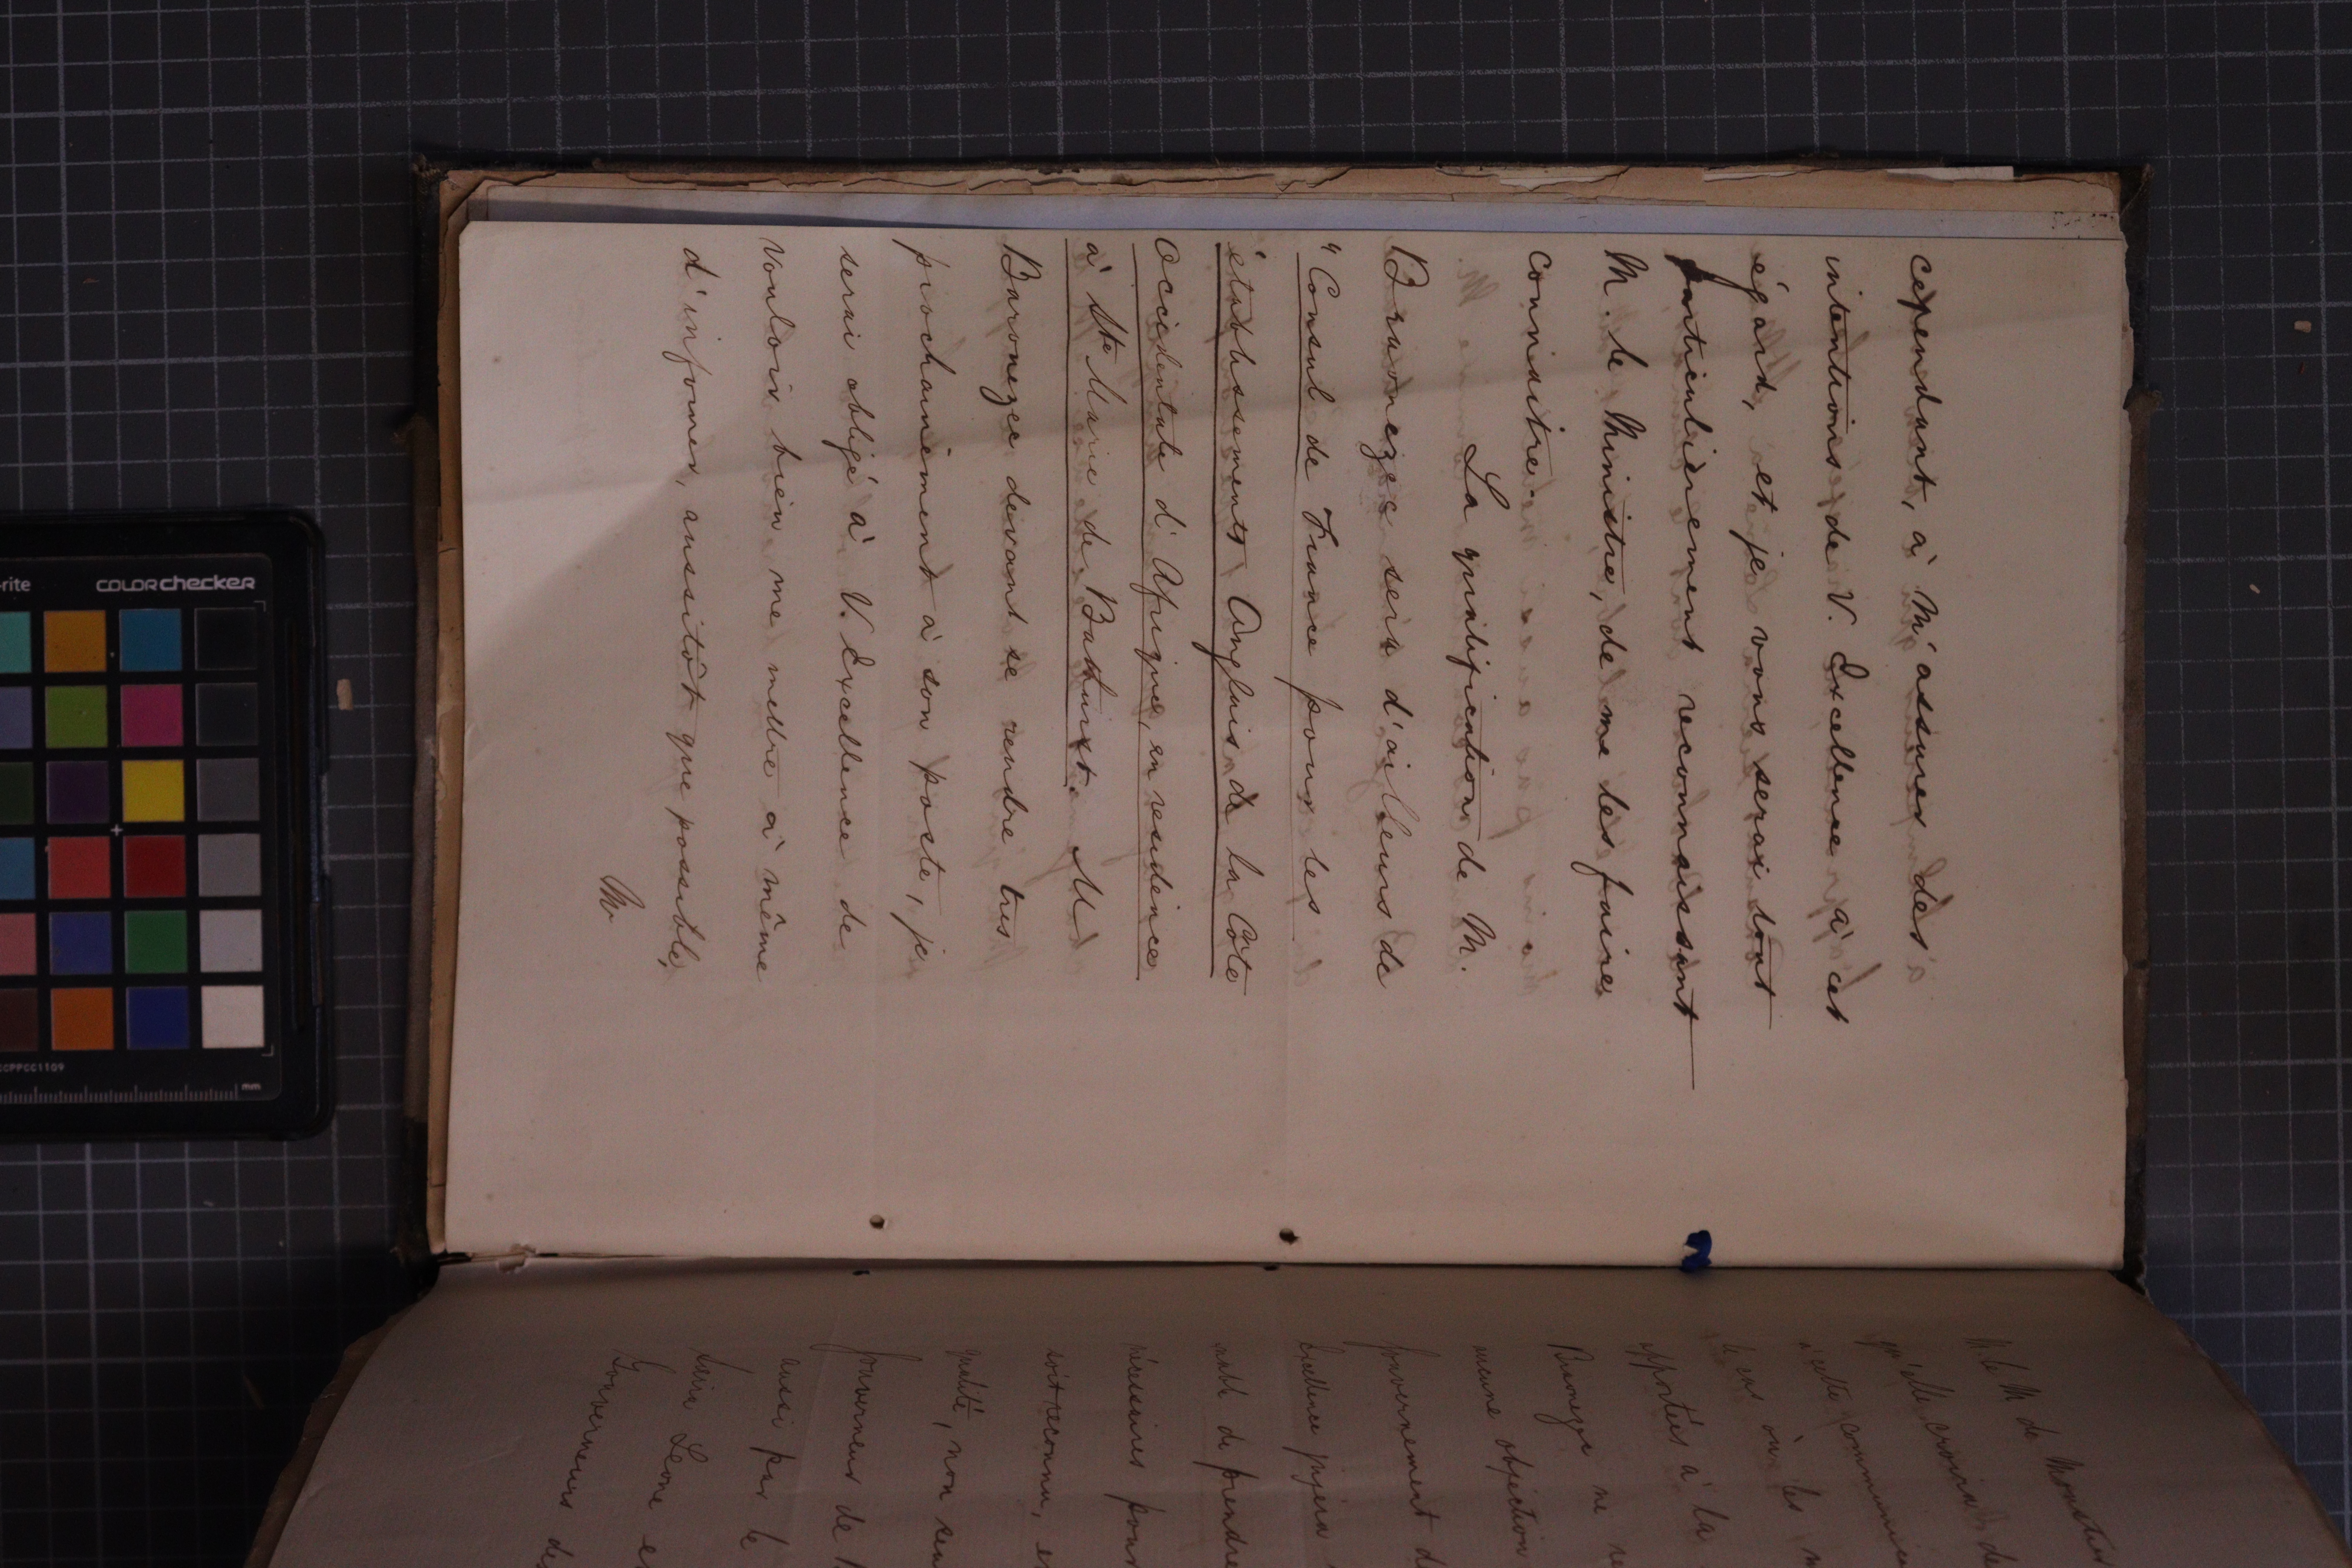 cependant, à m'assurer des
intentions de V. Excellence à cet
égard, et je vous serai tout
particulièrement reconnaissant
M. le Ministre, de me les faire
connaitre.
La qualification de M.
Braouezec sera d'ailleurs de
"Consul de France pour les
établissements Anglais de la Côte
Occidentale d'Afrique, en residence
à Ste Marie de Bathurst. M
Baronezec devant se rendre tres
prochainement à son poste, je
serai obligé à V. Excellence de
vouloir bien me mettre à même
d'informer, aussitôt que possible,
M.
M. le M de
qu'elle croira de
à cette
le cas où les
apportés à la
ne
aucune objection
Gouvernement de
Excellence jugera
de prendre
nécessaires pour
soit reconnu, en
qualité, non seu
Gouverneur de
aussi par le
Sierra Leone et
Gouverneurs des
-rite colorchecker
CCPPCC1109
mm